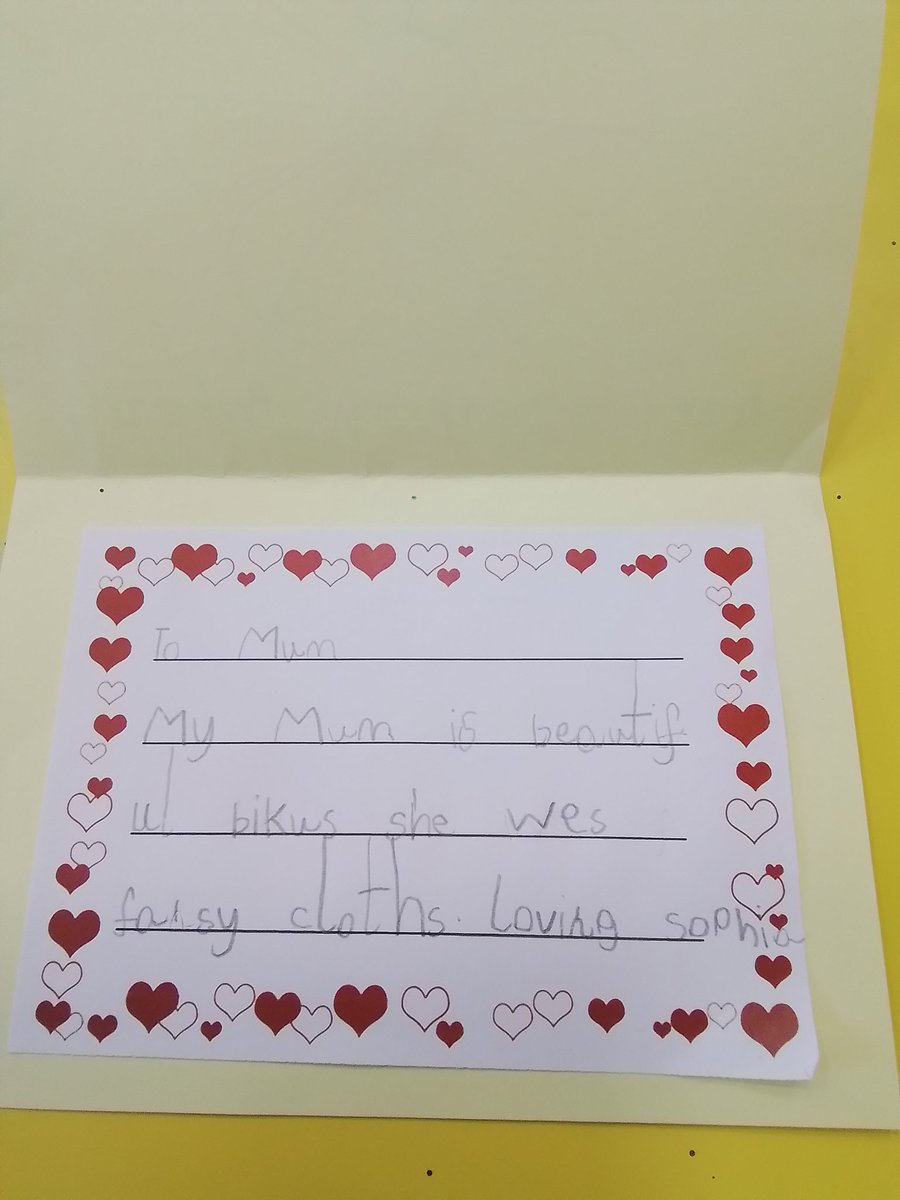 To Mum
My Mum is beautif
ul bikus she wes
fansy cloths. Loving sophia